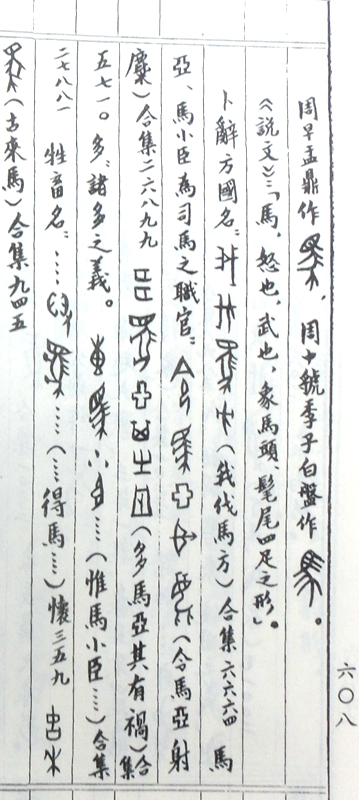 周早盂鼎作，周中虢季子白盤作。
《說文》：「馬，怒也，武也，象馬頭、髦尾四足之形」。
卜辭方國名：（我伐馬方）合集六六六四　馬
亞、馬小臣為司馬之職官：（令馬亞射
麋）合集二六八九九（多馬亞其有禍）合集
五七一。多：諸多之義。……（惟馬小臣……）合集
二七八八一　牲畜名：…………（……得馬……）懷三五九
（古來馬）合集九四五
六〇八